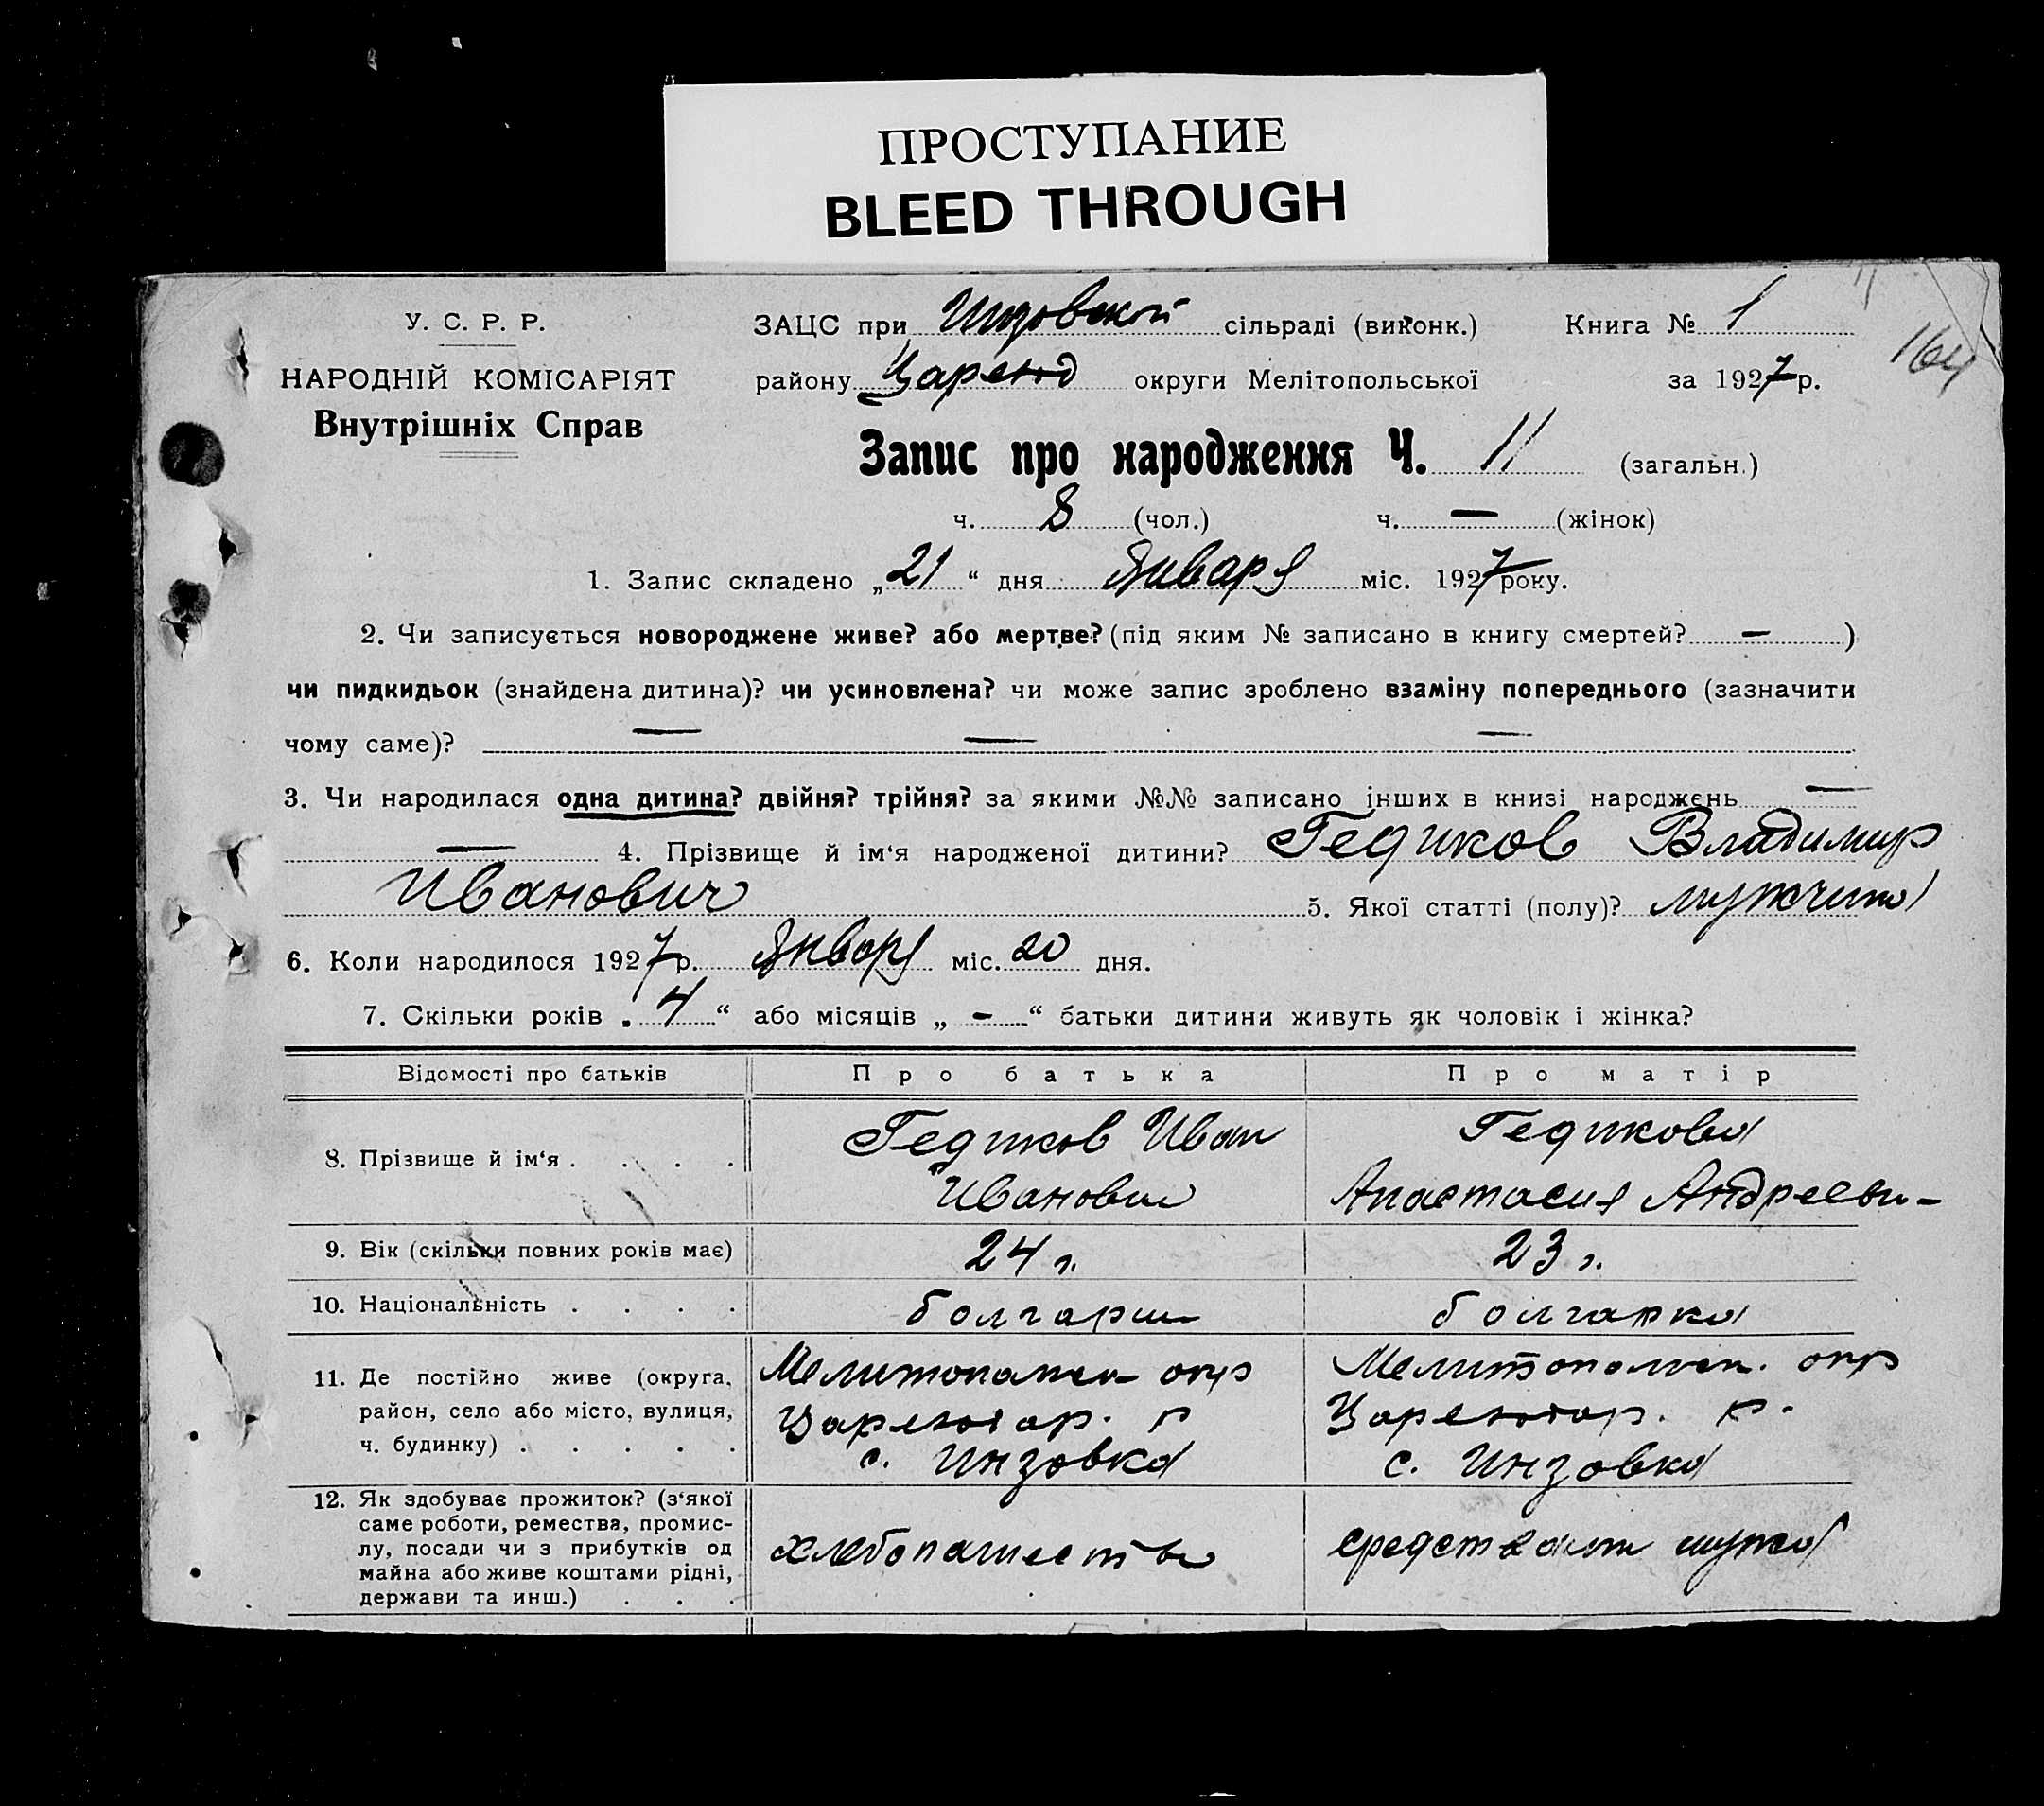 ПРОСТУПАНИЕ
BLEED THROUGH
У. С. Р. Р.
НАРОДНІЙ КОМІСАРІЯТ
Внутрішніх Справ
ЗАЦС при Инзовской сільраді (виконк.) Книга № 1
164
району Царекод округи Мелітопольської за 1927 р.
Запис про народження Ч. 11 (загальн.)
ч. 8 (чол.) ч. — (жінок)
1. Запис складено „21“ дня Января міс. 1927 року.
2. Чи записується новороджене живе? або мертве? (під яким № записано в книгу смертей? — )
чи пидкидьок (знайдена дитина)? чи усиновлена? чи може запис зроблено взаміну попереднього (зазначити
чому саме)? — — —
3. Чи народилася одна дитина? двійня? трійня? за якими №№ записано інших в книзі народжень —
— 4. Прізвище й ім‘я народженої дитини? Гедиков Владимир
Иванович 5. Якої статті (полу)? мужчина
6. Коли народилося 1927 р. Январ міс. 20 дня.
7. Скільки років „4“ або місяців „ — “ батьки дитини живуть як чоловік і жінка?
Відомості про батьків Про батька Про матір
8. Прізвище й ім‘я . . . . Гедиков Иван Иванович Гедикова Анастасия Андреевн-
9. Вік (скільки повних років має) 24 г. 23 г.
10. Національність . . . . болгарин болгарка
11. Де постійно живе (округа,
район, село або місто, вулиця,
ч. будинку) . . . . .
Мелитопольск окр
р
с. Инзовка
Мелитопольск. окр
р.
с. Инзовка
12. Як здобуває прожиток? (з‘якої
саме роботи, ремества, промис-
лу, посади чи з прибутків од
майна або живе коштами рідні,
держави та инш.) . . .
хлебопашество
средствами мужа